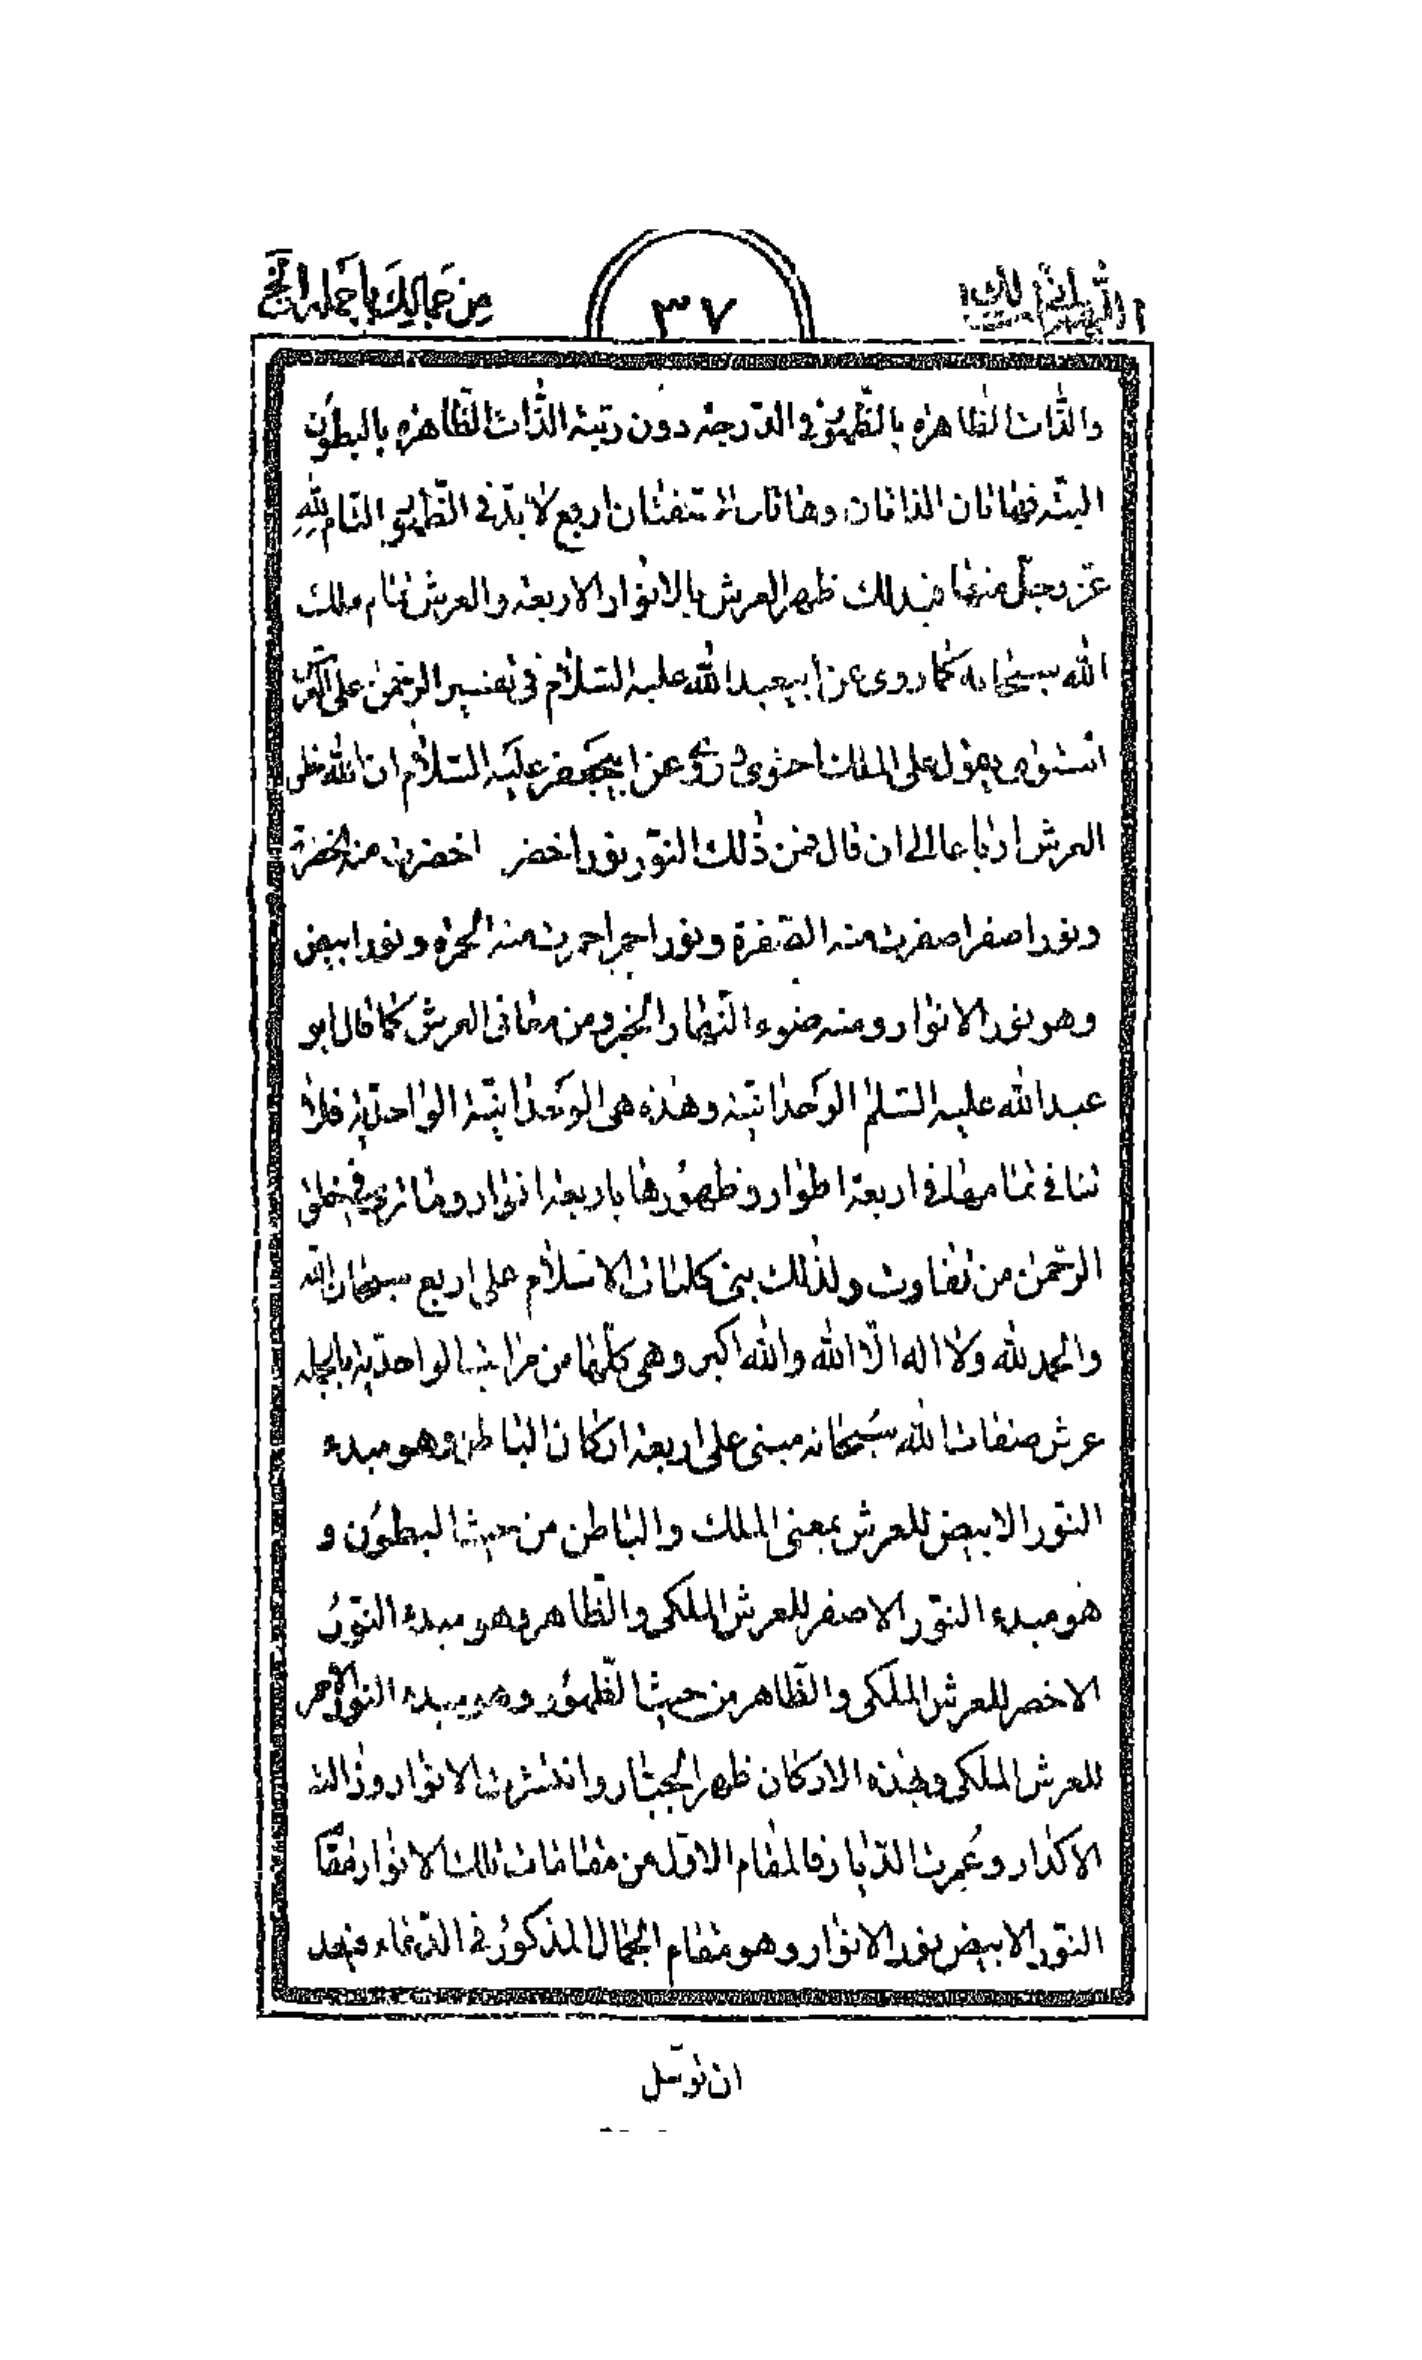 اللهم انی اسئلک
٣٧
من جمالك باجمله الخ
والذات الظاهره بالظهور فی الدرجه دون رتبة الذات الظاهره بالبطون
البتّه فهاتان الذاتان وهاتان الصفتان اربع لابدّ فی الظهور التام لله
عز وجل منها فبذلك ظهر العرش بالانوار الاربعه والعرش تمام ملك
الله سبحانه كما روى عن ابیعبدالله علیه السلام فی تفسیر الرحمن على العرش
استوى یقول على الملك احتوى و روی عن ابیجعفر علیه السلام ان الله خلق
العرش ارباعا الى ان قال فمن ذلك النور نور اخضر اخضرت منه الخضرة
ونور اصفر اصفرت منه الصفرة ونور احمر احمرت منه الحمره ونور ابیض
وهو نور الانوار ومنه ضوء النهار الخبر ومن معانی العرش كما قال ابو
عبدالله علیه السلم الوحدانیّه وهذه هی الوحدانیّة الواحدیّه فلا
تنافی تمامها فی اربعة اطوار وظهورها باربعة انوار وما ترى فی خلق
الرحمن من تفاوت ولذلك بنی كلمات الاسلام على اربع سبحان الله
والحمد لله ولا اله الّا الله والله اكبر وهی كلّها من مراتب الواحدیّه بالجمله
عرش صفات الله سبحانه مبنی على اربعة اركان الباطن وهو مبدء
النور الابیض للعرش بمعنی الملك والباطن من حیث البطون و
هو مبدء النور الاصفر للعرش الملكی والظاهر وهو مبدء النور
الاخضر للعرش الملكی والظاهر من حیث الظهور وهو مبدء النور الاحمر
للعرش الملكی وبهذه الاركان ظهر الجبّار وانتشرت الانوار وزالت
الاكدار وعُمرت الدّیار فالمقام الاول من مقامات تلك الانوار مقام
النور الابیض نور الانوار وهو مقام الجمال المذكور فی الدعاء فبعد
ان توسّل